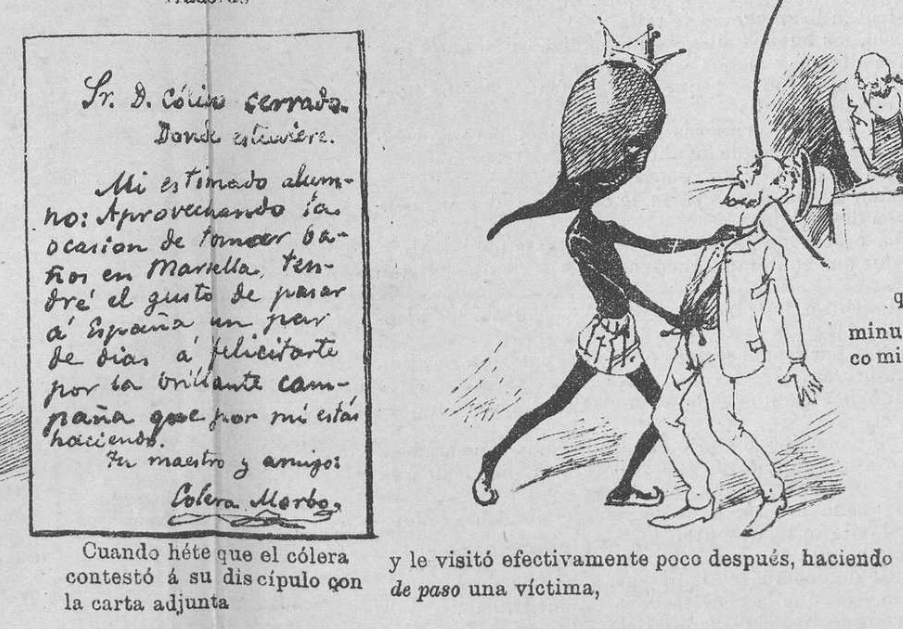 Sr. D. Cólico cerrado.
Donde estuviere.
Mi estimado alum-
no: Aprovechando la
ocasion de tomar ba-
ños en Marsella, ten-
dré el gusto de pasar
á España un par
de dias á felicitarte
por la brillante cam-
paña que por mi estás
haciendo.
Tu maestro y amigo:
Colera Morbo.
Cuando héte que el cólera
contestó á su discípulo con
la carta adjunta
y le visitó efectivamente poco después, haciendo
de paso una víctima,
minu
co mi